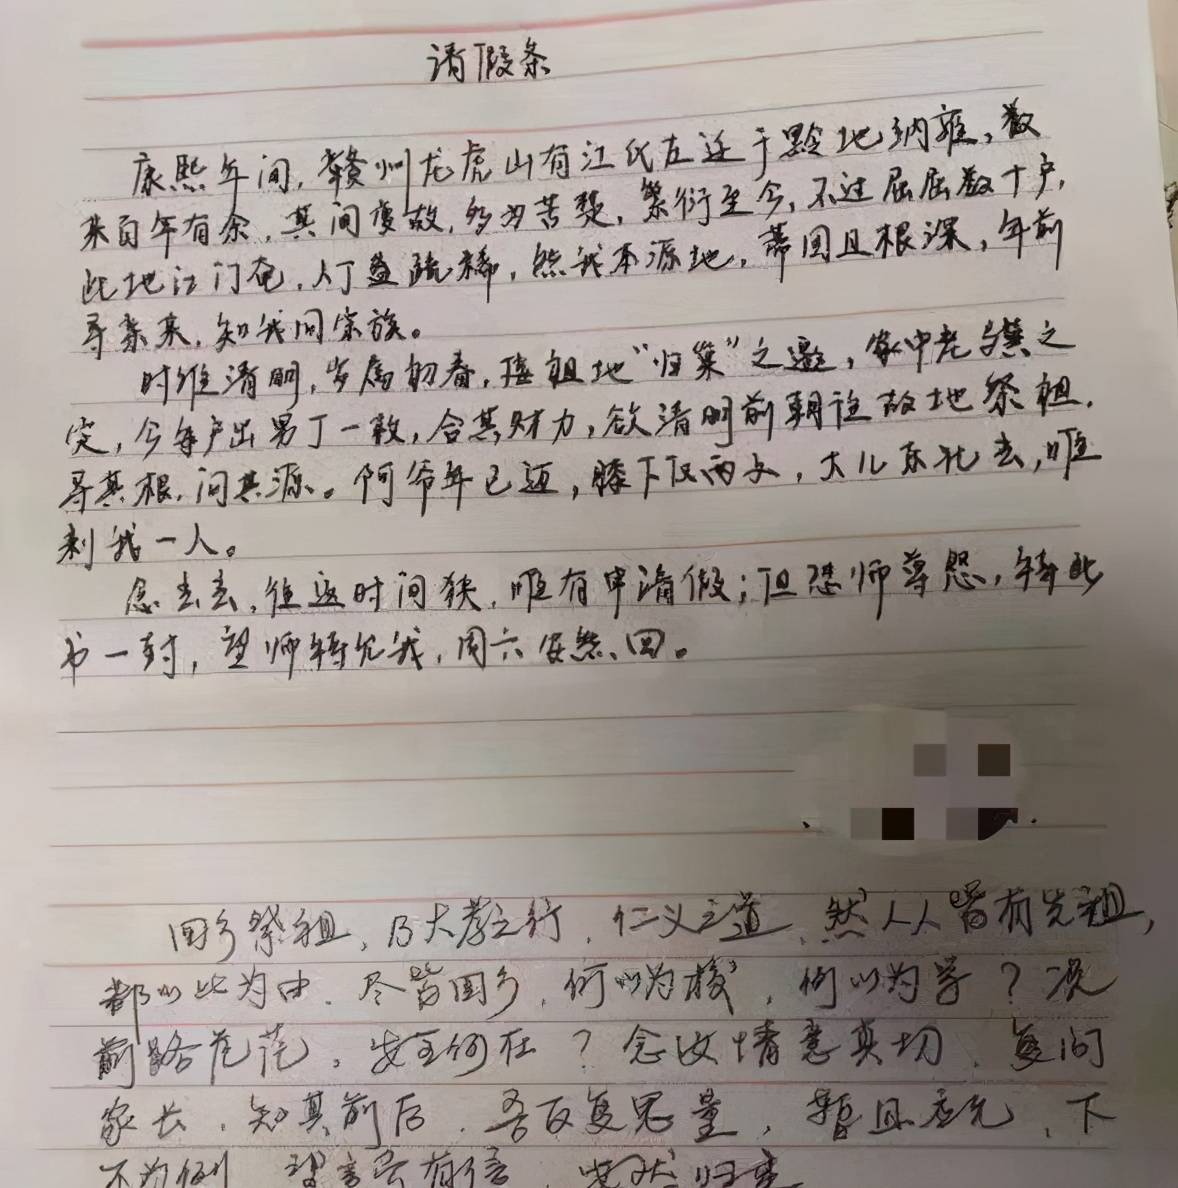 请假条
康熙年间，赣州龙虎山有江氏左迁于黔地纳雍，数
来百年有余，其间变故，多为苦楚，繁衍至今，不过屈屈数十户，
此地江门奄，人丁益疏稀，然我本源地，蒂固且根深，年前
寻亲来，知我同宗族。
时维清明，岁属初春，接祖地“归巢”之邀，家中老多冀之
突，今每户出男丁一枚，合其财力，欲清明前朝往故地祭祖，
寻其根，问其源。阿爷年已迈，膝下仅两子，大儿东北去，唯
剩我一人。
念去去，往返时间狭，唯有申请假；但恐师尊怨，特此
书一封，望师特允我，周六安然回。
回乡祭祖，乃大孝之行，仁义之道，然人人皆有先祖，
都以此为由，尽皆回乡，何以为校，何以为学？况
前路茫茫，安全何在？念汝情意真切，复问
家长，知其前后，吾反复思量，暂且应允，下
不为例，望言而有信，安然归来